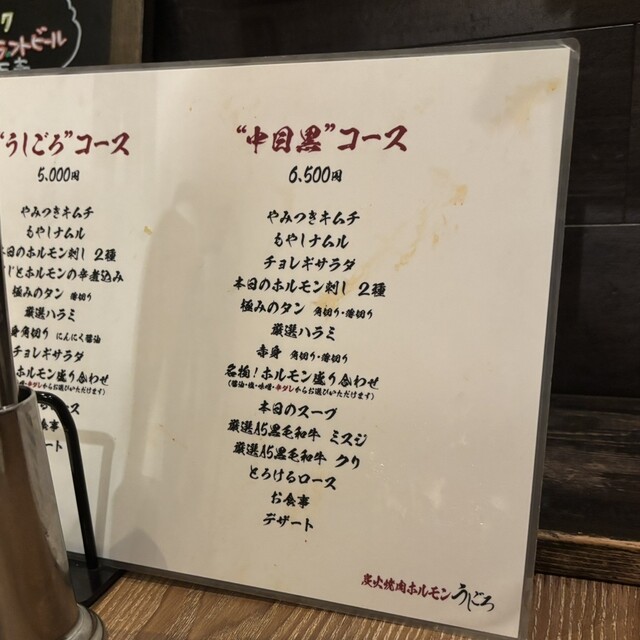 ク
ラントビール
"うしごろ"コース
5.000円
やみつきキムチ
もやしナムル
本日のホルモン刺し 2種
じとホルモンの辛煮込み
極みのタン 薄切り
厳選ハラミ
身 角切り にんにく醤油
チョレギサラダ
ホルモン盛り合わせ
味噌・辛ダレからお選びいただけます)
ース
食事
ート
"中目黒"コース
6.500円
やみつきキムチ
もやしナムル
チョレギサラダ
本日のホルモン刺し 2種
極みのタン 角切り・薄切り
厳選ハラミ
赤身 角切り・薄切り
名極!ホルモン盛り合わせ
(醤油・塩・味噌・辛ダレからお選びいただけます)
本日のスープ
厳選A5黒毛和牛 ミスジ
厳選A5黒毛和牛 クリ
とろけるロース
お食事
デザート
炭火焼肉ホルモン うしごろ